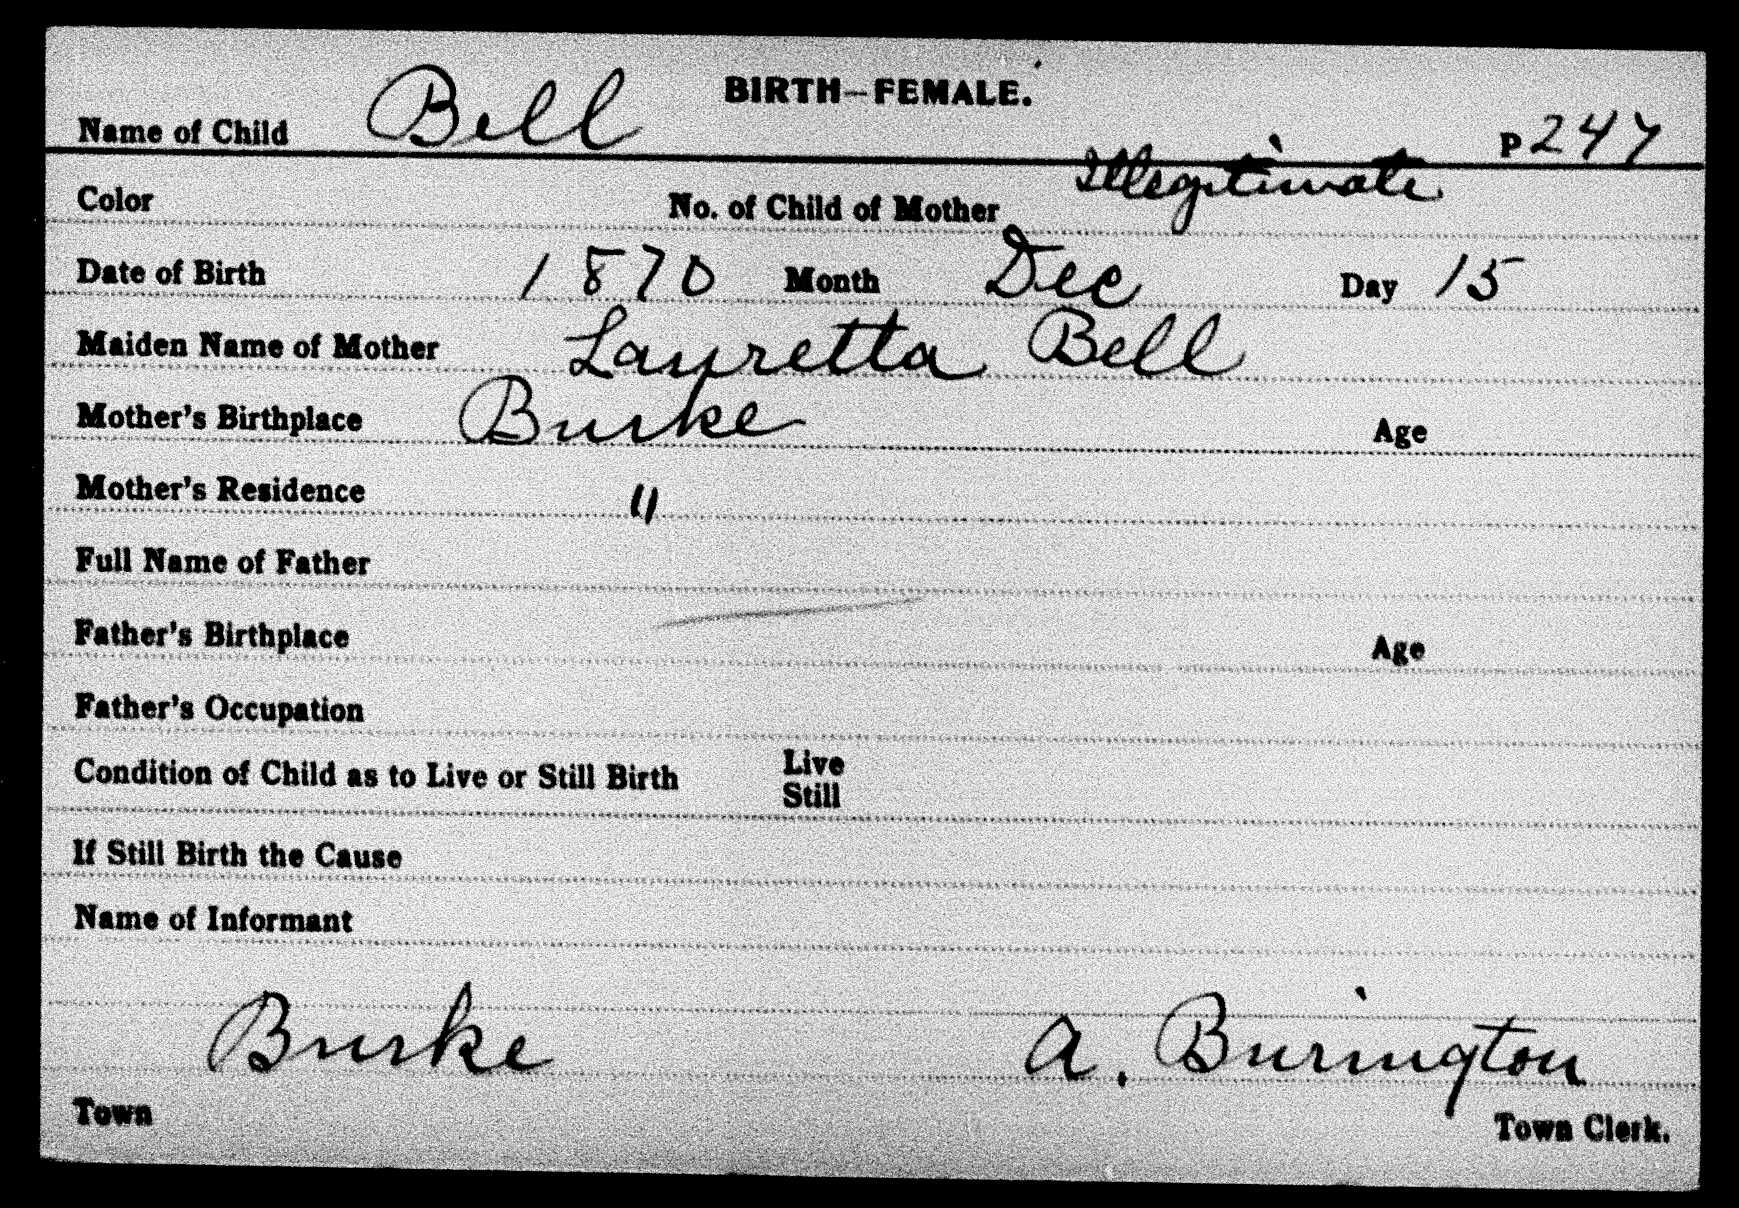 BIRTH—FEMALE.
Name of Child Bell P 247
Color No. of Child of Mother Illegitimate
Date of Birth 1870 Month Dec Day 15
Maiden Name of Mother Lauretta Bell
Mother's Birthplace Burke Age
Mother's Residence "
Full Name of Father
Father's Birthplace Age
Father's Occupation
Condition of Child as to Live or Still Birth Live
Still
If Still Birth the Cause
Name of Informant
Burke A. Burington
Town Town Clerk.